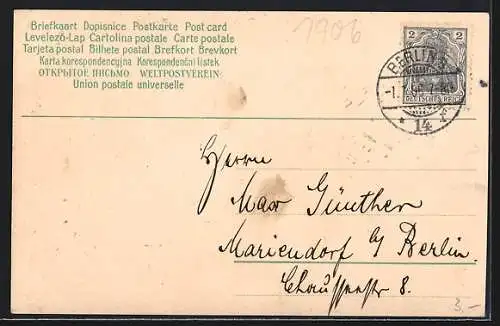 Briefkaart Dopisnice Postkarte Post card
Levelező-Lap Cartolina postale Carte postale
Tarjeta postal Bilhete postal Brefkort Brevkort
Karta korespondencyjna Korespondenční lístek
ОТКРЫТОЕ ПИСЬМО WELTPOSTVEREIN
Union postale universelle
1906
2 2
DEUTSCHES REICH
BERLIN
* 14
Herrn
Max Günther
Mariendorf b/ Berlin
Chausseestr 8.
3.-